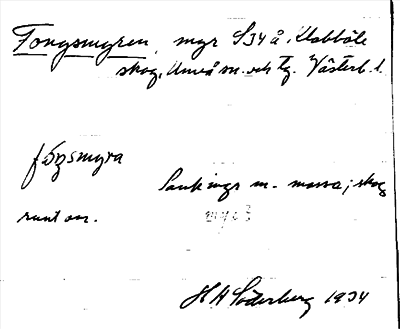 Fongsmyren, myr S34 å Klabböle
skog, Umeå sn. och tg. Västerb. l.
fóŋsmyra
Sankings m. mossa; skog
runt om.
H A Söderberg 1934